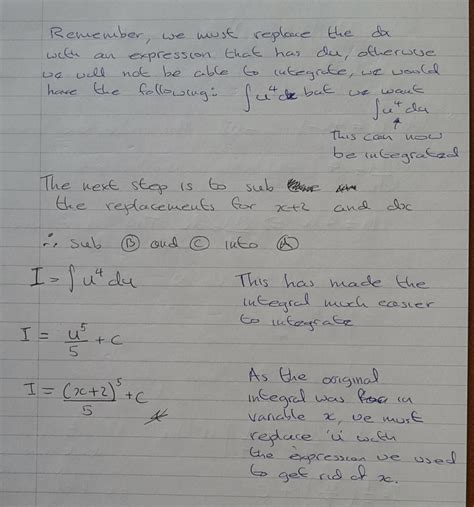 Remember, we must replace the dx
with an expression that has du, otherwise
we will not be able to integrate, we would
have the following: ∫u⁴dx but we want
∫u⁴du
This can now
be integrated
The next step is to sub
the replacements for x+2 and dx
∴ sub Ⓑ and Ⓒ into Ⓐ
I = ∫u⁴ du
This has made the
integral much easier
to integrate
I = u⁵/5 + c
I = (x+2)⁵/5 + c
As the original
integral was in
variable x, we must
replace 'u' with
the expression we used
to get rid of x.